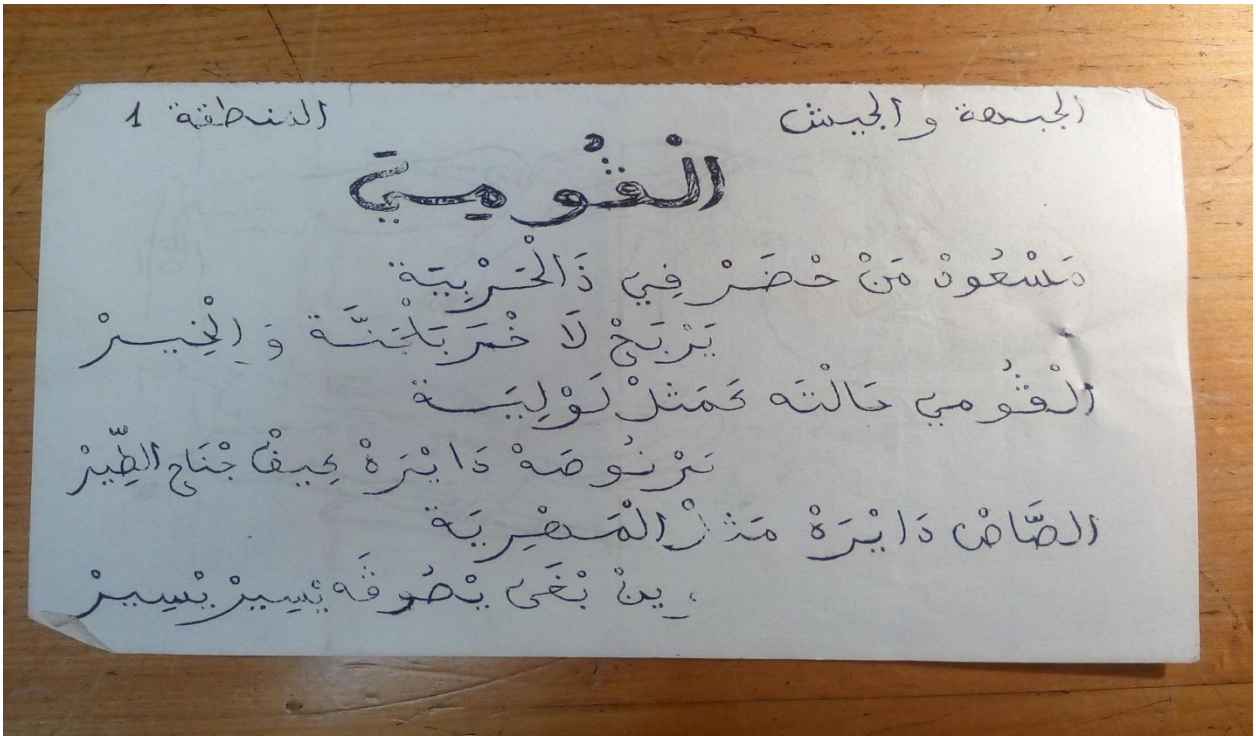 الجبهة والجيش المنطقة 1
الْڨُومِي
مَسْعُودْ مَنْ حْضَرْ فِي ذَالْحَرْبِيَة
يَرْبَحْ لَا خْرَ بَلْجَنَّة وَ الْخِيرْ
الْڨُومي حَالْتَه كَمَثلْ لَوْلِيَة
بَرْنُوصَهْ دَايْرَهْ كِيفْ جْنَاح الطِّيرْ
الصَّاصْ دَايْرَهْ مَثلْ الْمَصْرِيَة
وِينْ بْغَى يْصُوڨَه يْسِيرْ يْسِيرْ